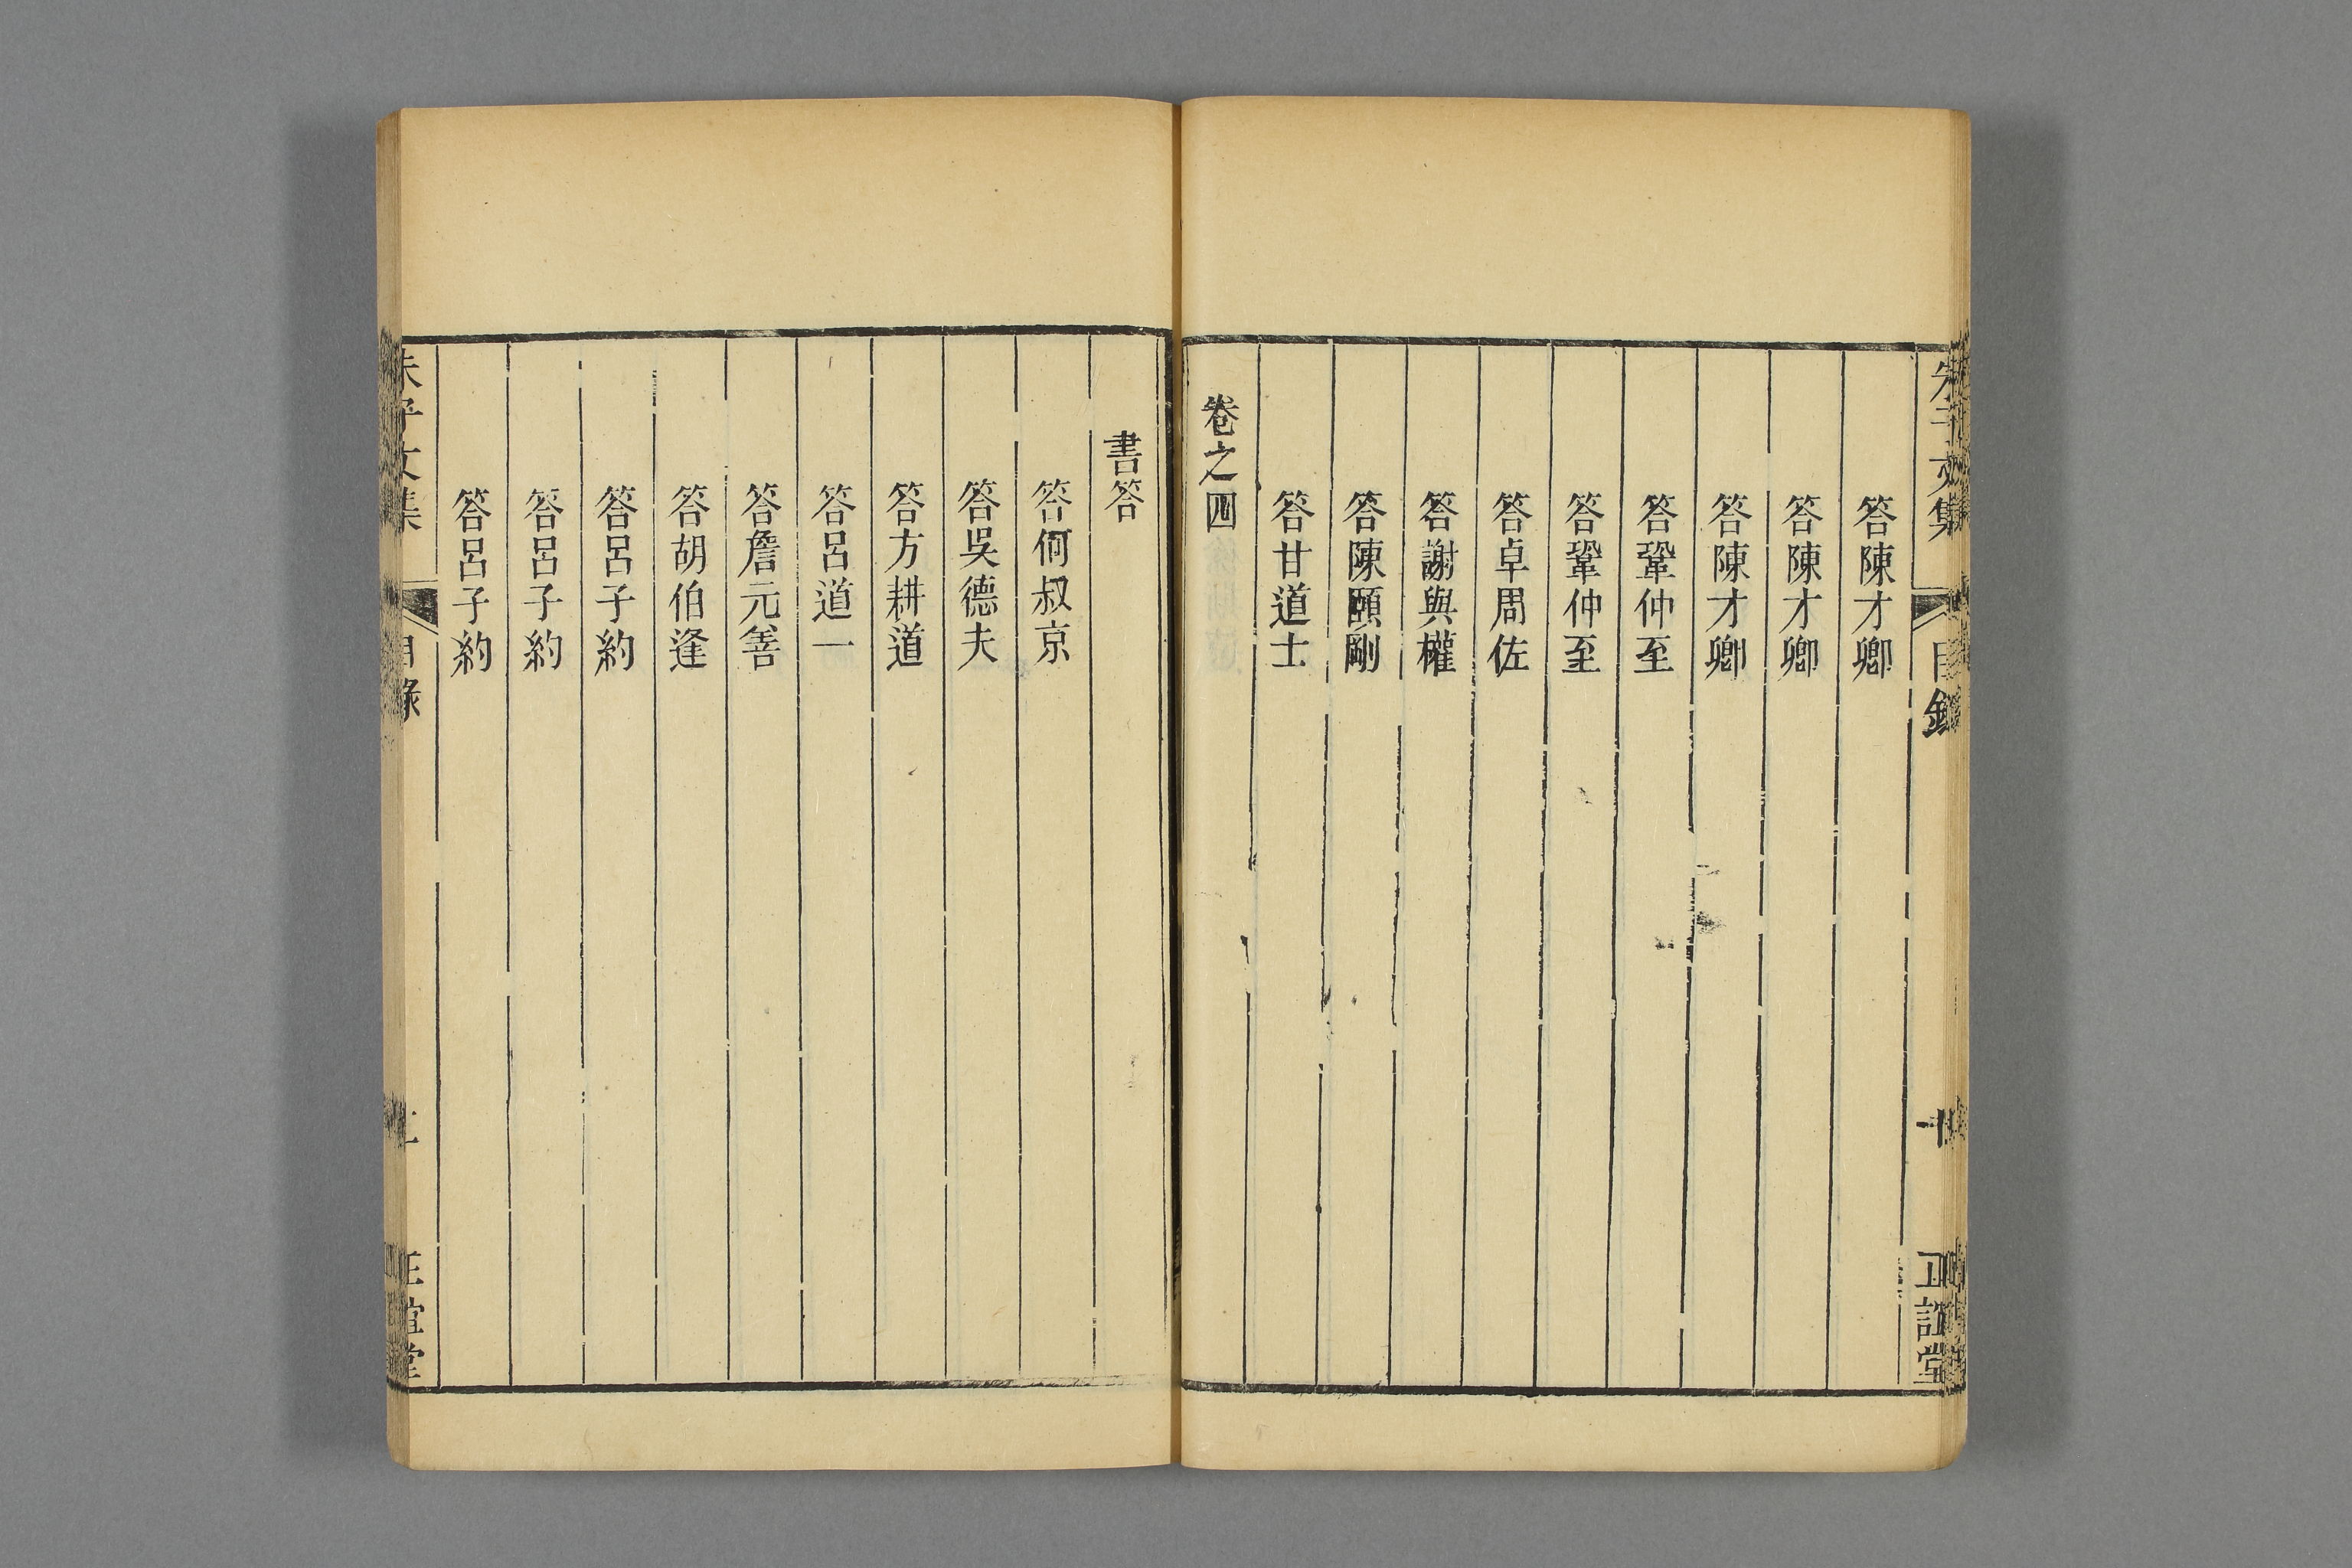 朱子文集
目錄
正誼堂
答陳才卿
答陳才卿
答陳才卿
答鞏仲至
答鞏仲至
答卓周佐
答謝與權
答陳頤剛
答甘道士
卷之四
書答
答何叔京
答吳德夫
答方耕道
答呂道一
答詹元善
答胡伯逢
答呂子約
答呂子約
答呂子約
朱子文集
目錄
正誼堂